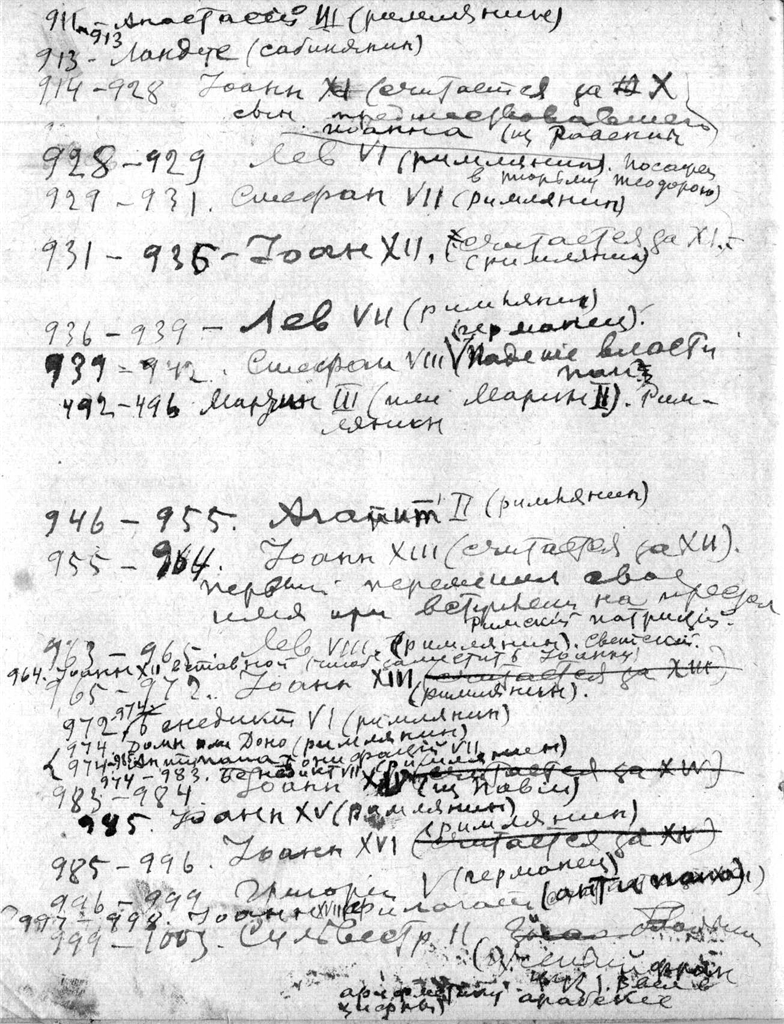 911-913 Анастасий III (римлянин)
913- Ландус (сабинянин)
914-928 Иоанн XI (считается за X)
сын предшествовавшего
Иоанна (из Равенны
928-929 Лев VI (римлянин). Посажен
в тюрьму Теодорою)
929-931. Стефан VII (римлянин)
931-935- Иоан XII. (считается за XI.
римлянин)
936-939- Лев VII (римлянин)
(германец).
939-942. Стефан VIII Падение власти
пап
492-496 Марцин III (или Марин II). Рим-
лянин
946-955. Агапит II (римлянин)
955-964. Иоанн XIII (считается за XII).
первый переменил свое
имя при вступлении на престол
Римский патриций.
963-965. Лев VIII. (римлянин). Светский.
964. Иоанн XII
965-972. Иоанн XIV (считается за XIII)
(римлянин).
972-974. Бенедикт VI (римлянин)
974 Домн или Доно (римлянин)
974- Антипапа Бонифаций VII
(римлянин)
974-983. Бенедикт VII
983-984 Иоанн (считается за XIV)
(из Павии)
985. Иоанн XV (римлянин)
(римлянин)
985-996. Иоанн XVI (считается за XV)
996-999 Григорий V (германец)
997-998. Иоанн XVII Филагат (антипапа)
999-1003. Сильвестр II
арифметику
цифры арабские